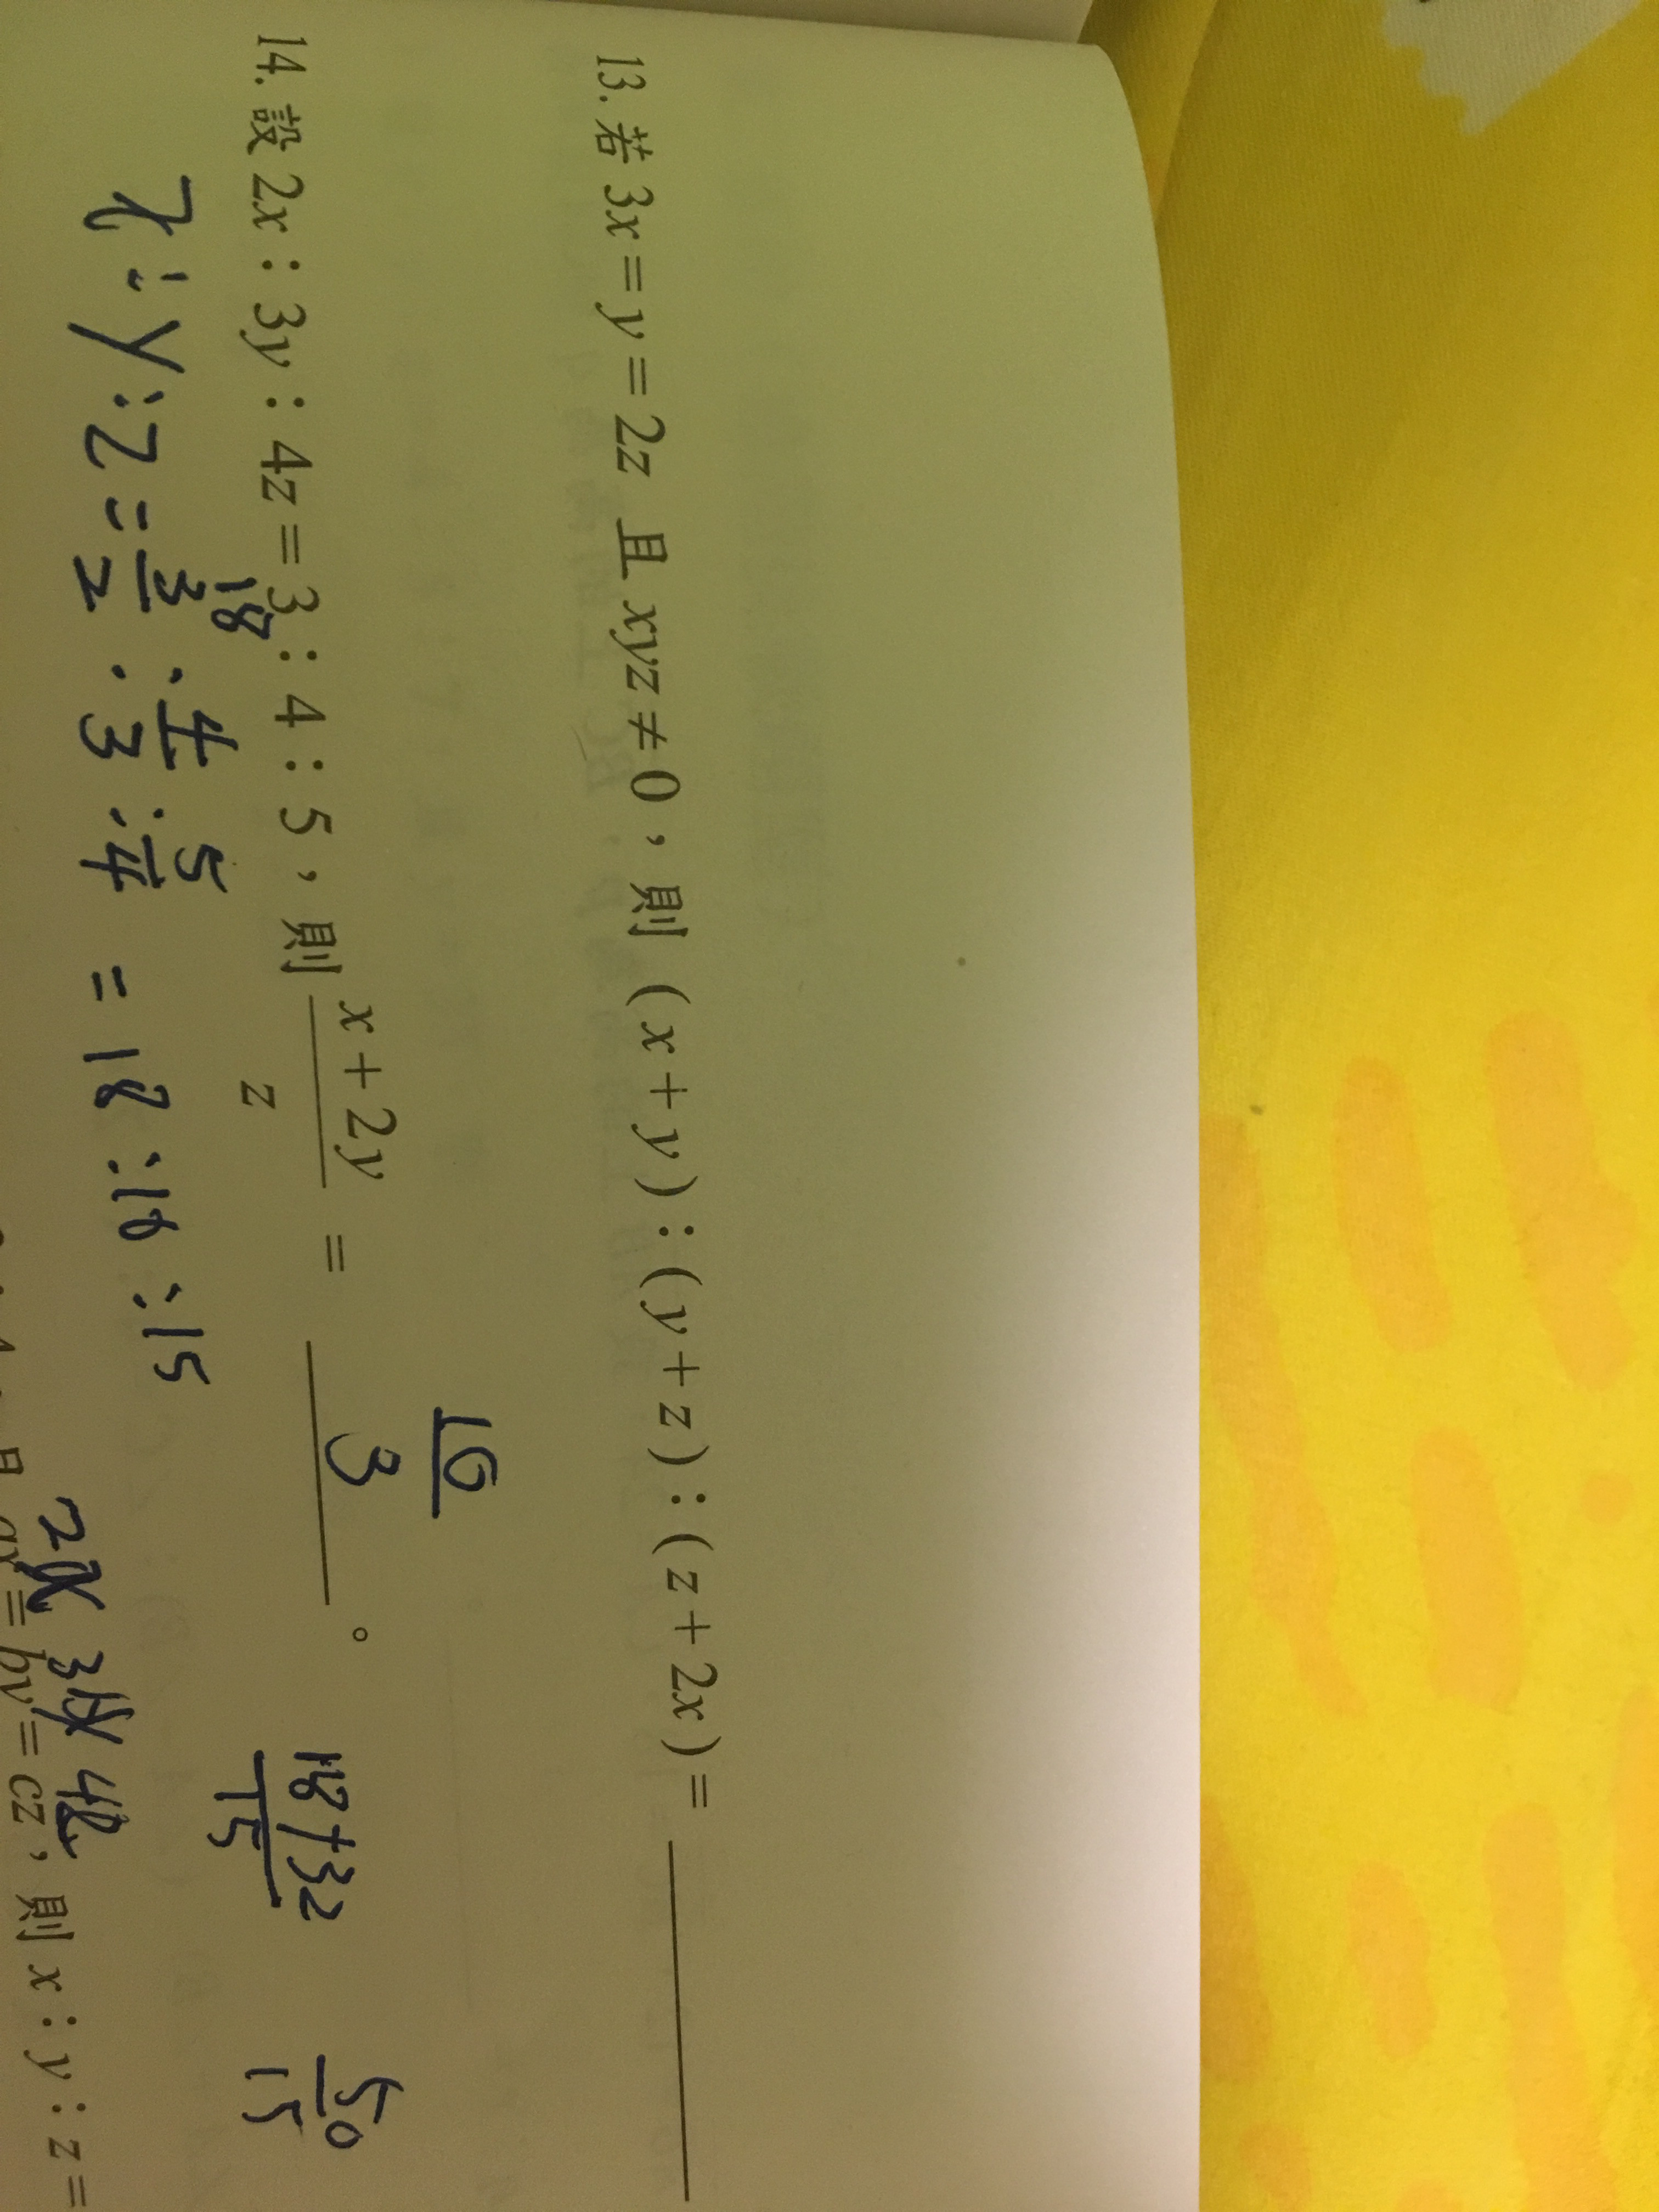 13. 若 3x = y = 2z 且 xyz ≠ 0，則 (x + y)：(y + z)：(z + 2x) = ______
14. 設 2x：3y：4z = 3：4：5，則 \frac{x + 2y}{z} = \frac{10}{3}。
18
x : y : z = \frac{3}{2} : \frac{4}{3} : \frac{5}{4} = 18 : 16 : 15
\frac{18+32}{15} \frac{50}{15}
2x 3y 4z
且 ax = by = cz，則 x：y：z =